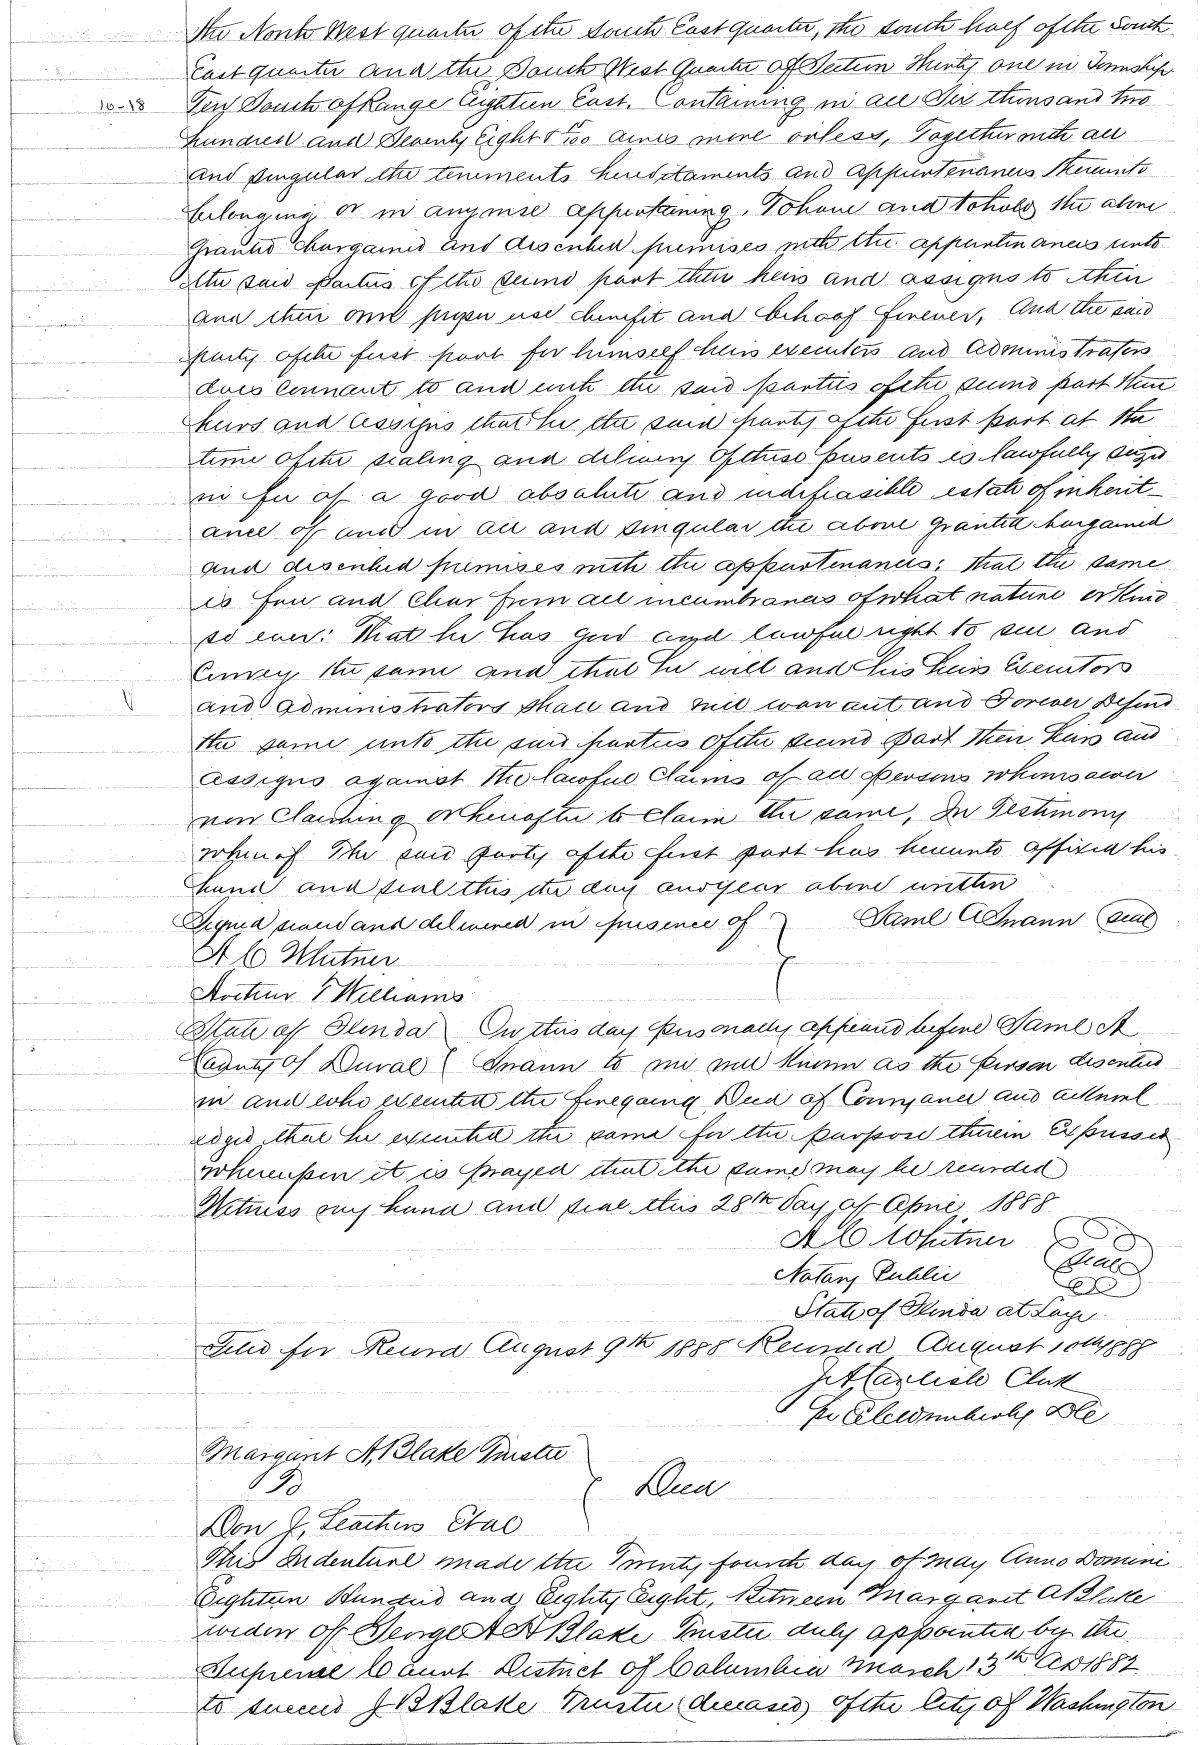 the North West quarter of the South East quarter, the south half of the South
East quarter and the South West Quarter of Section Thirty one in Township
10-18 Ten South of Range Eighteen East. Containing in all Six thousand two
hundred and Seventy Eight & /100 acres more or less, Together with all
and singular the tenements hereditaments and appurtenances thereunto
belonging or in anywise appertaining. To have and to hold the above
Granted bargained and described premises with the appurtenances unto
the said parties of the second part their heirs and assigns to their
and their own proper use benefit and behoof forever, And the said
party of the first part for himself heirs executors and administrators
does covenant to and with the said parties of the second part their
heirs and assigns that he the said party of the first part at the
time of the sealing and delivery of these presents is lawfully seized
in fee of a good absolute and indefeasible estate of inherit-
ance of and in all and singular the above granted bargained
and described premises with the appurtenances; that the same
is free and clear from all incumbrances of what nature or kind
so ever: That he has good and lawful right to sell and
Convey the same and that he will and his heirs Executors
and administrators shall and will warrant and Forever Defend
the same unto the said parties of the second part their heirs and
assigns against the lawful claims of all persons whomsoever
now claiming or hereafter to claim the same, In Testimony
whereof The said party of the first part has hereunto affixed his
hand and seal this the day and year above written
Signed sealed and delivered in presence of } Saml A Swann (seal)
A C Whitner
Arthur T Williams
State of Florida } On this day personally appeared before Saml A
County of Duval } Swann to me well known as the person described
in and who executed the foregoing Deed of Conveyance and acknowl
edged that he executed the same for the purpose therein Expressed
whereupon it is prayed that the same may be recorded
Witness my hand and seal this 28th Day of April 1888
A C Whitner
Notary Public (Seal)
State of Florida at Large.
Filed for Record August 9th 1888 Recorded August 10th 1888
Carlisle Clerk
DC
Margaret A, Blake Trustee
To } Deed
Don J, Leathers Et al
This Indenture made the Twenty fourth day of May Anno Domini
Eighteen Hundred and Eighty Eight, Between Margaret A Blake
widow of George A H Blake Trustee duly appointed by the
Supreme Court District of Columbia March 13th AD 1882
to succeed J B Blake Trustee (deceased) of the City of Washington